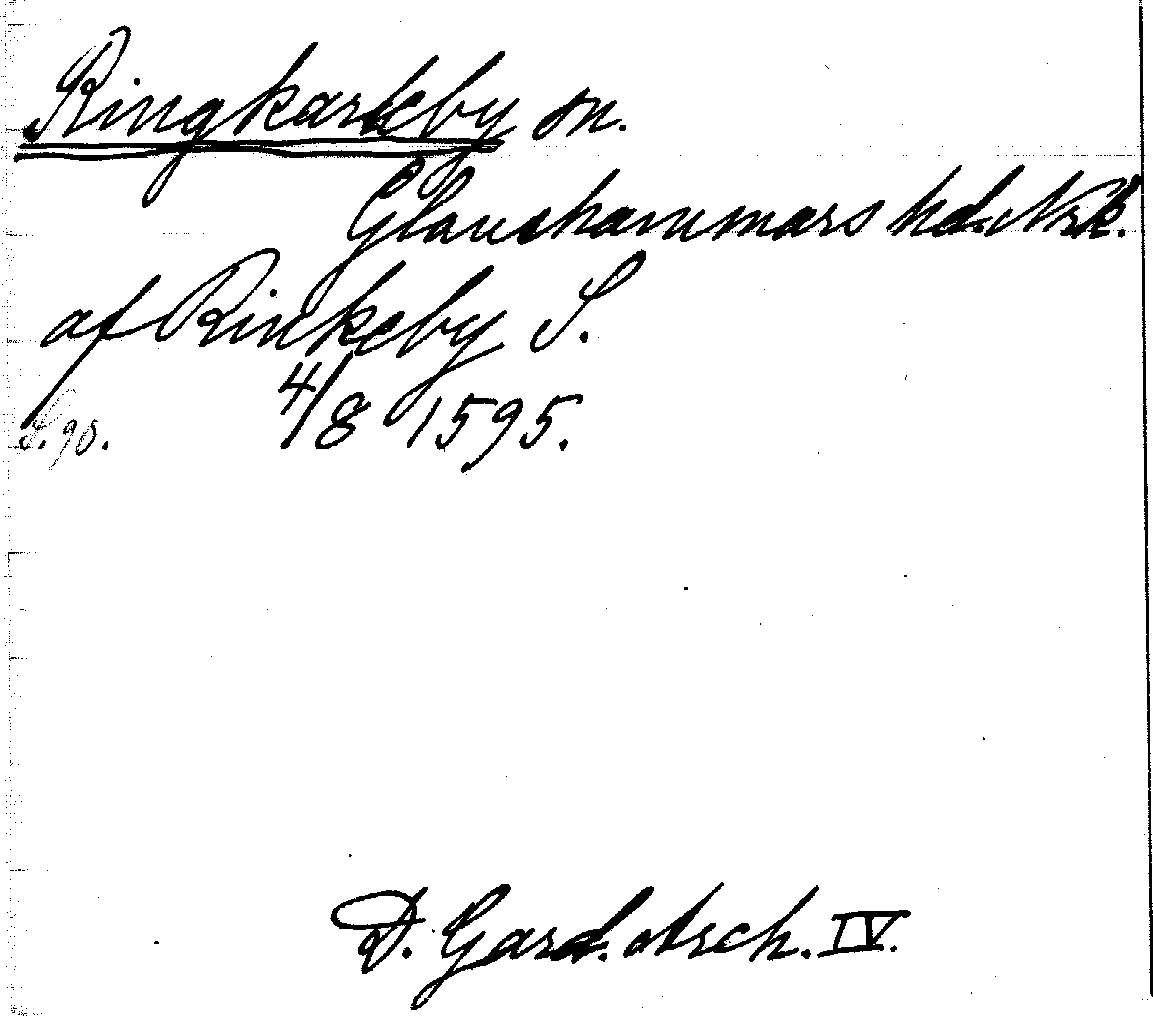 Ringkarleby sn.
Glanshammars hd. Nrk.
af Rinkeby S.
S. 90. 4/8 1595.
D. Gard. Arch. IV.